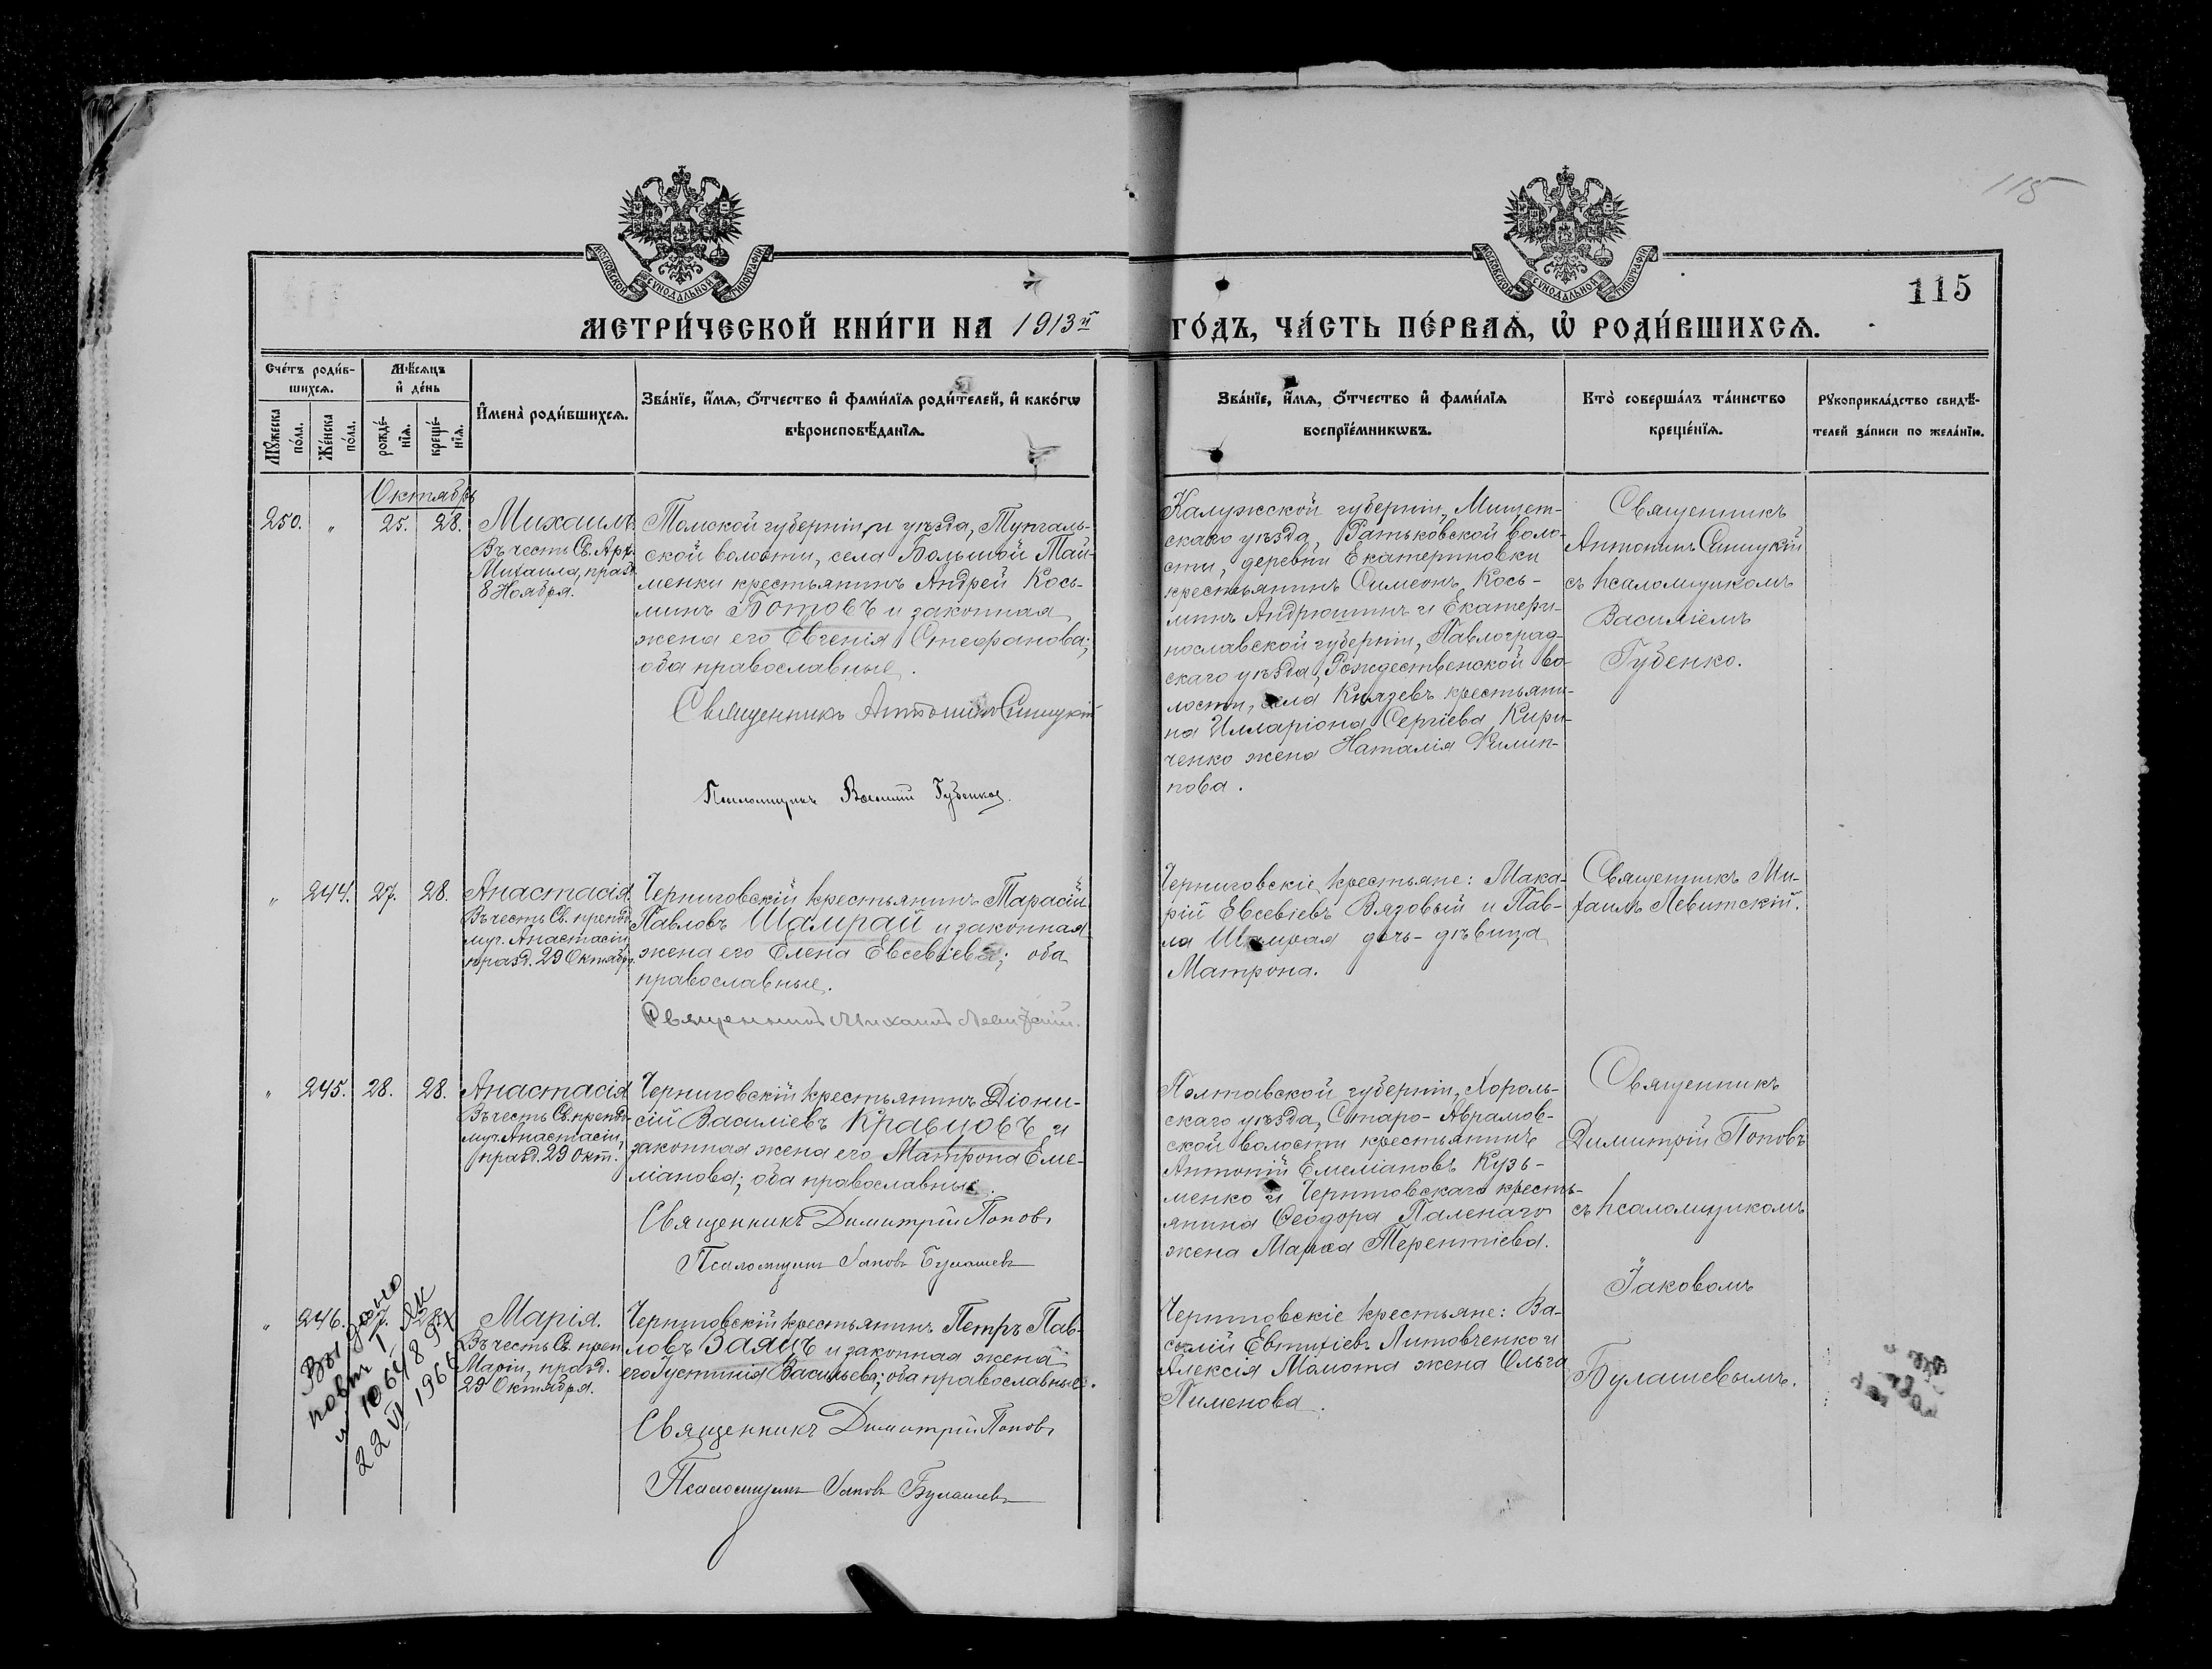 115
МОСКОВСКОЙ СѴНОДАЛЬНОЙ ТИПОГРАФІИ
МОСКОВСКОЙ СѴНОДАЛЬНОЙ ТИПОГРАФІИ
115
МЕТРИ́ЧЕСКОЙ КНИ́ГИ НА 1913й ГО́ДЪ, ЧА́СТЬ ПЕ́РВАѦ, Ѡ҆ РОДИ́ВШИХСѦ.
Сче́тъ роди́в-
шихсѧ.
Мꙋ́жеска
по́ла.
Же́нска
по́ла.
Мѣ́сѧцъ
и҆ де́нь
рожде́-
нїѧ.
креще́-
нїѧ.
И҆мена̀ роди́вшихсѧ.
Зва́нїе, и҆́мѧ, ѻ҆́тчество и҆ фами́лїѧ роди́телей, и҆ како́гѡ
вѣроисповѣ́данїѧ.
Зва́нїе, и҆́мѧ, ѻ҆́тчество и҆ фами́лїѧ
воспрїе́мникѡвъ.
Кто̀ соверша́лъ та́инство
креще́нїѧ.
Рꙋкоприкла́дство свидѣ́-
телей за́писи по жела́нїю.
Октябрь
250. „ 25. 28.
Михаилъ
Въ честь Св. Арх.
Михаила, празд.
8 Ноября.
Томской губерніи и уѣзда,
ской волости, села Большой Тай-
менки крестьянинъ Андрей Кось-
минъ Ботовъ и законная
жена его Евгенія Стефанова;
оба православные.
Священникъ Антонинъ Синицкій
Псаломщикъ Василій Губенко.
Калужской губерніи,
скаго уѣзда, воло-
сти, деревни Екатериновки
крестьянинъ Симеонъ Кось-
минъ Андрюшинъ и Екатери-
нославской губерніи, Павлоград-
скаго уѣзда, Рождественской во-
лости, села Князевъ крестьяни-
на Илларіона Сергіева Кири-
ченко жена Наталія Филип-
пова.
Священникъ
Антонинъ Синицкій
съ псаломщикомъ
Василіемъ
Губенко.
„ 244. 27. 28.
Анастасія
Въ честь Св. препод.
муч. Анастасіи,
празд. 29 Октября.
Черниговскій крестьянинъ Тарасій
Павловъ Шамрай и законная
жена его Елена Евсевіева; оба
православные.
Священникъ Михаилъ Левитскій.
Черниговскіе крестьяне: Мака-
рій Евсевіевъ Вязовый и Пав-
ла Шамрая дочь-дѣвица
Матрона.
Священникъ Ми-
хаилъ Левитскій.
„ 245. 28. 28.
Анастасія
Въ честь Св. препод.
муч. Анастасіи,
празд. 29 Окт.
Черниговскій крестьянинъ Діони-
сій Василіевъ Кравцовъ и
законная жена его Матрона Еме-
ліанова; оба православные.
Священникъ Димитрій Поповъ
Псаломщикъ Іаковъ Булашевъ
Полтавской губерніи, Хороль-
скаго уѣзда, Старо-Аврамов-
ской волости крестьянинъ
Антоній Емеліановъ Кузь-
менко и Черниговскаго кресть-
янина Ѳеодора Паленаго
жена Марѳа Терентіева.
Священникъ
Димитрій Поповъ
съ псаломщикомъ
Іаковомъ
Булашевымъ.
„ 246.
Марія.
Въ честь Св. преп.
Маріи, празд.
29 Октября.
Черниговскій крестьянинъ Петръ Пав-
ловъ Заяцъ и законная жена
его Іустинія Васильева; оба православные.
Священникъ Димитрій Поповъ
Псаломщикъ Іаковъ Булашевъ
Черниговскіе крестьяне: Ва-
силій Евтихіевъ Литовченко и
Алексія Мамота жена Ольга
Пименова.
Выдано
повт. I ЯК
№ 1064897
22 VI 1966